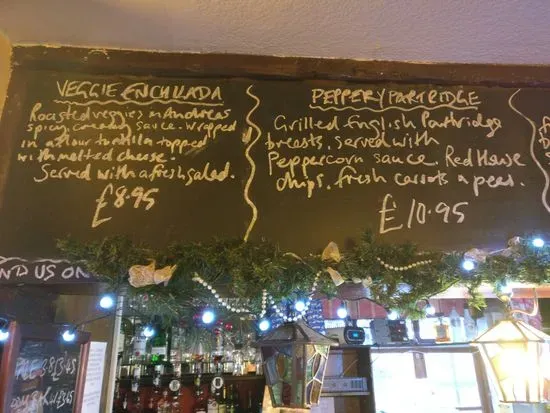 VEGGIE ENCHILADA
Roasted veggies in Andreas
spicy, creamy sauce. Wrapped
in a flour tortilla topped
with melted cheese.
Served with a fresh salad.
£8.95
PEPPERY PARTRIDGE
Grilled English Partridge
breasts, served with
Peppercorn sauce, Red House
chips, fresh carrots n peas.
£10.95
ND US ON